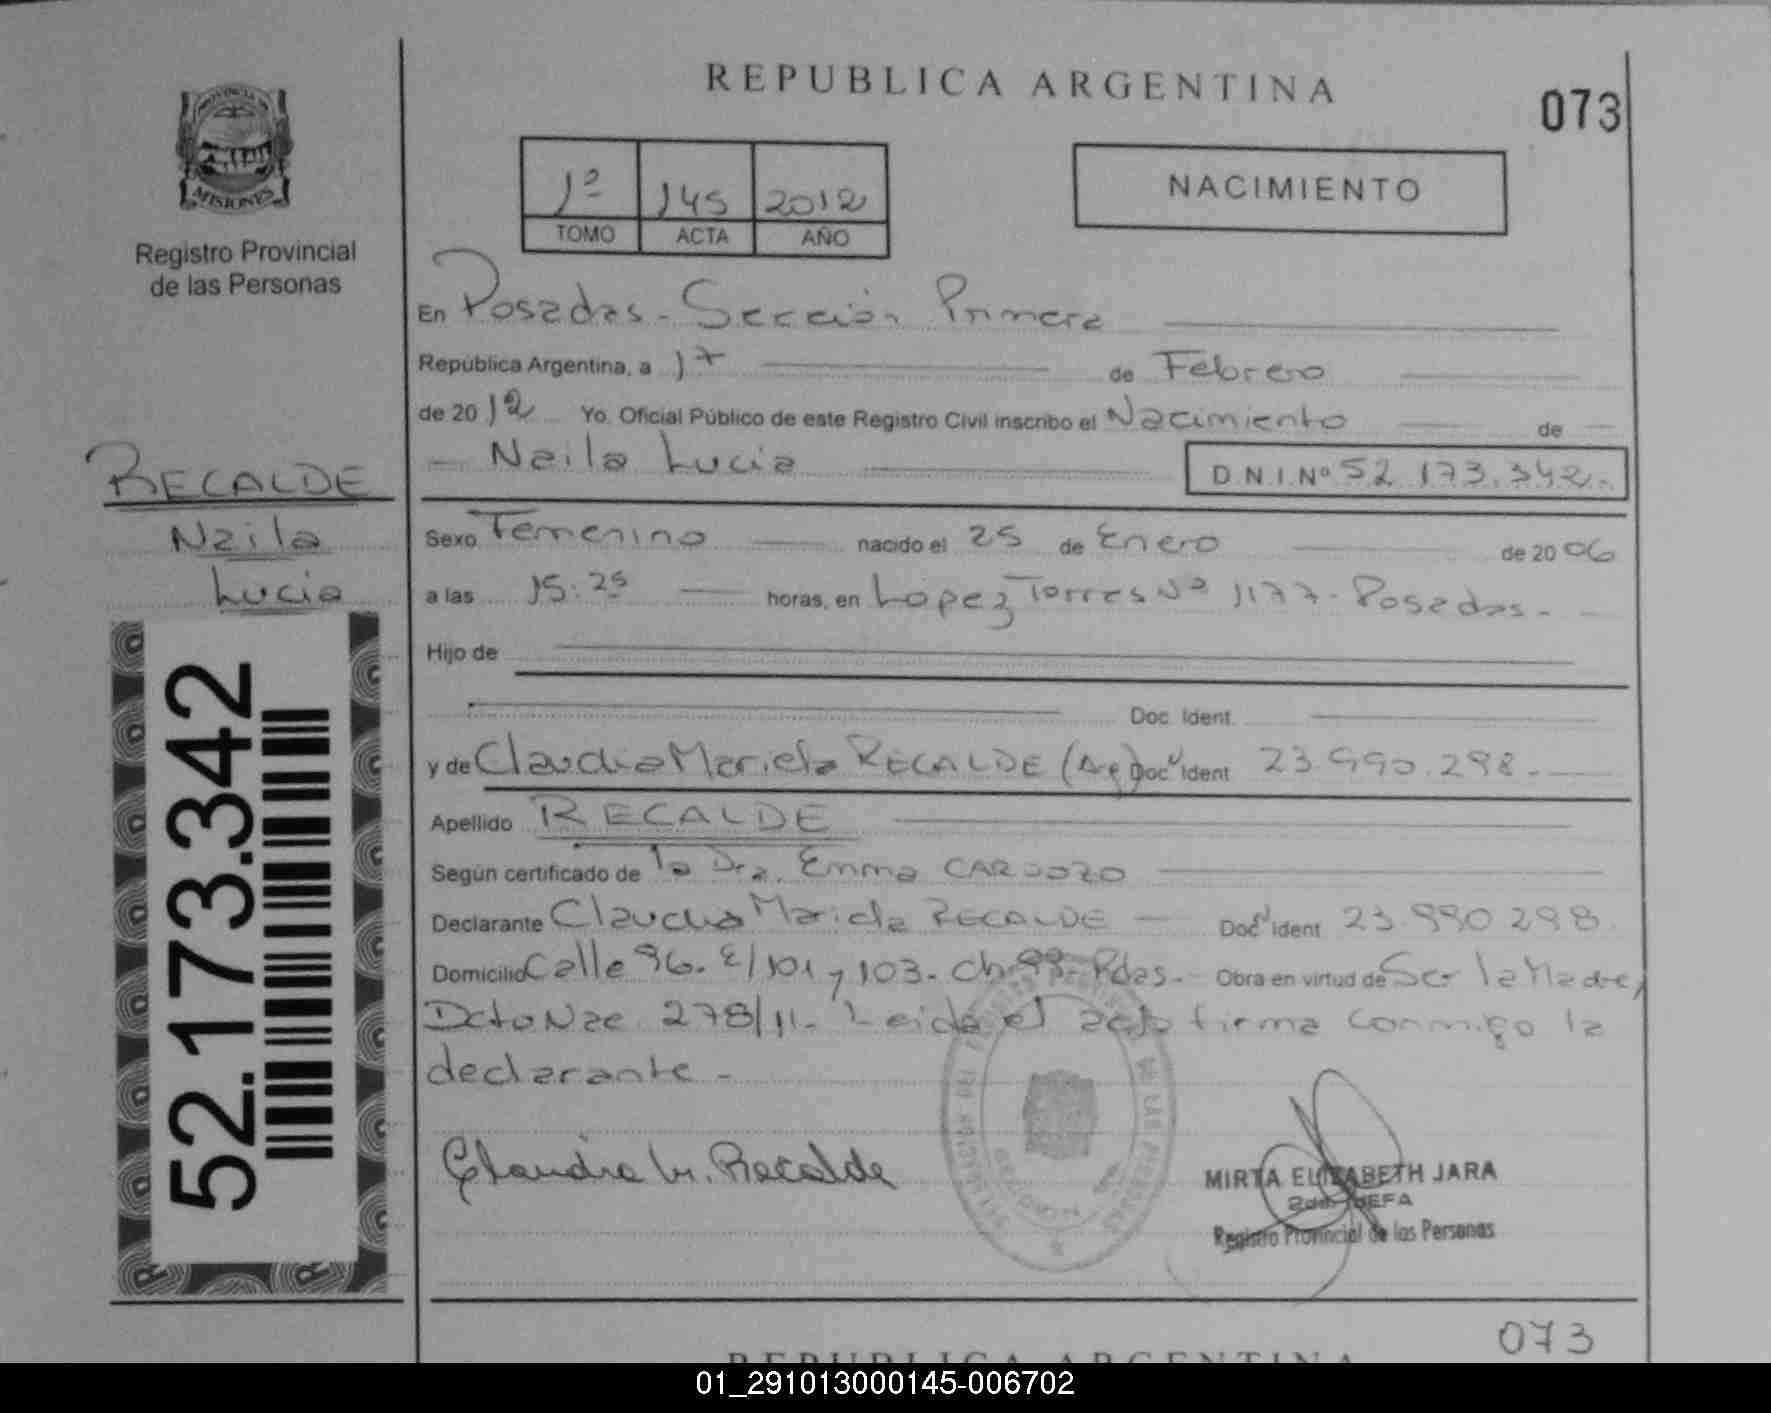 REPUBLICA ARGENTINA
073
PROVINCIA DE
MISIONES
Registro Provincial
de las Personas
1º 145 2012
TOMO ACTA AÑO
NACIMIENTO
En Posadas - Sección Primera
República Argentina, a 17 de Febrero
de 2012 Yo, Oficial Público de este Registro Civil inscribo el Nacimiento de
Naila Lucia D.N.I. Nº 52.173.342.-
RECALDE
Naila
Lucia
52.173.342
Sexo Femenino nacido el 25 de Enero de 2006
a las 15:25 horas, en Lopez Torres Nº 1177 - Posadas -
Hijo de
Doc. Ident.
y de Claudia Mariela RECALDE (Arg) Doc. Ident. 23.990.298.-
Apellido RECALDE
Según certificado de la Dra. Emma CARDOZO
Declarante Claudia Mariela RECALDE - Doc. Ident. 23.990.298.
Domicilio Calle 96. e/101 y 103 - ch. 99 - Pdas. - Obra en virtud de Ser la Madre,
Dcto Nac. 278/11 - Leida el acta firma conmigo la
declarante -
Claudia M. Recalde
MIRTA ELIZABETH JARA
2da. JEFA
Registro Provincial de las Personas
073
REPUBLICA ARGENTINA
01_291013000145-006702